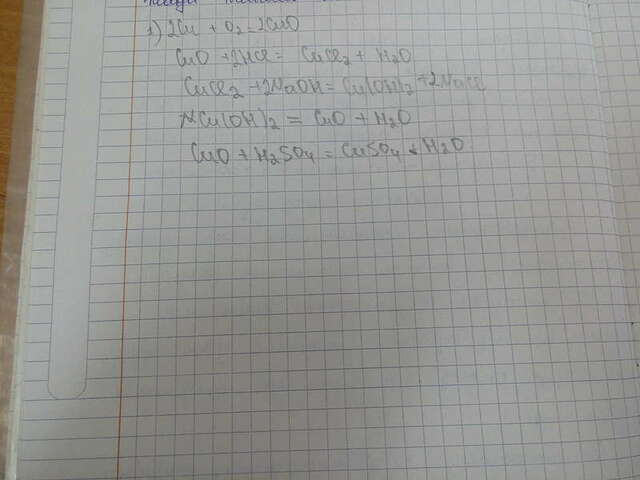 1) 2Cu + O2 = 2CuO
CuO + 2HCl = CuCl2 + H2O
CuCl2 + 2NaOH = Cu(OH)2 + 2NaCl
Cu(OH)2 = CuO + H2O
CuO + H2SO4 = CuSO4 + H2O